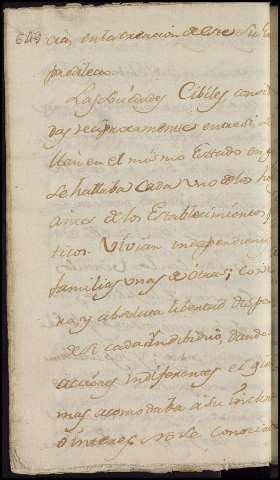 cia, en la creacion de este su
predilec
Las Sociedades Cibiles consi
das reciprocamente entre si
en el mismo Estado en q
se hallaba cada uno de los ho
antes de los Establecimientos
ticos. Vivian independien
familias unas de otras; con
ra, y absoluta libertad dispo
de si cada Yndibiduo, dando
acciones indiferentes el gi
mas acomodaba a su inclin
o interes. No se conocian